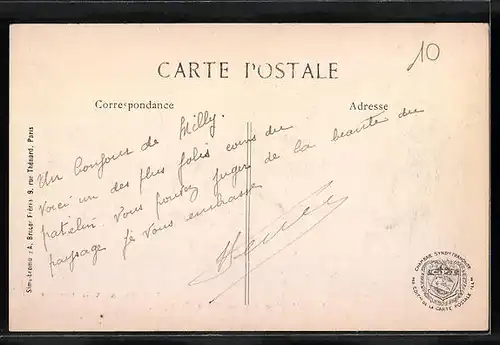 10
CARTE POSTALE
Correspondance
Adresse
Un bonjour de Milly.
Voici un des plus jolis coins du
patelin. Vous pouvez juger de la beauté du
paysage Je vous embrasse
9, rue Thénard, Paris
CHAMBRE SYNDle FRANÇAISE
DE LA CARTE POSTALE ILLée